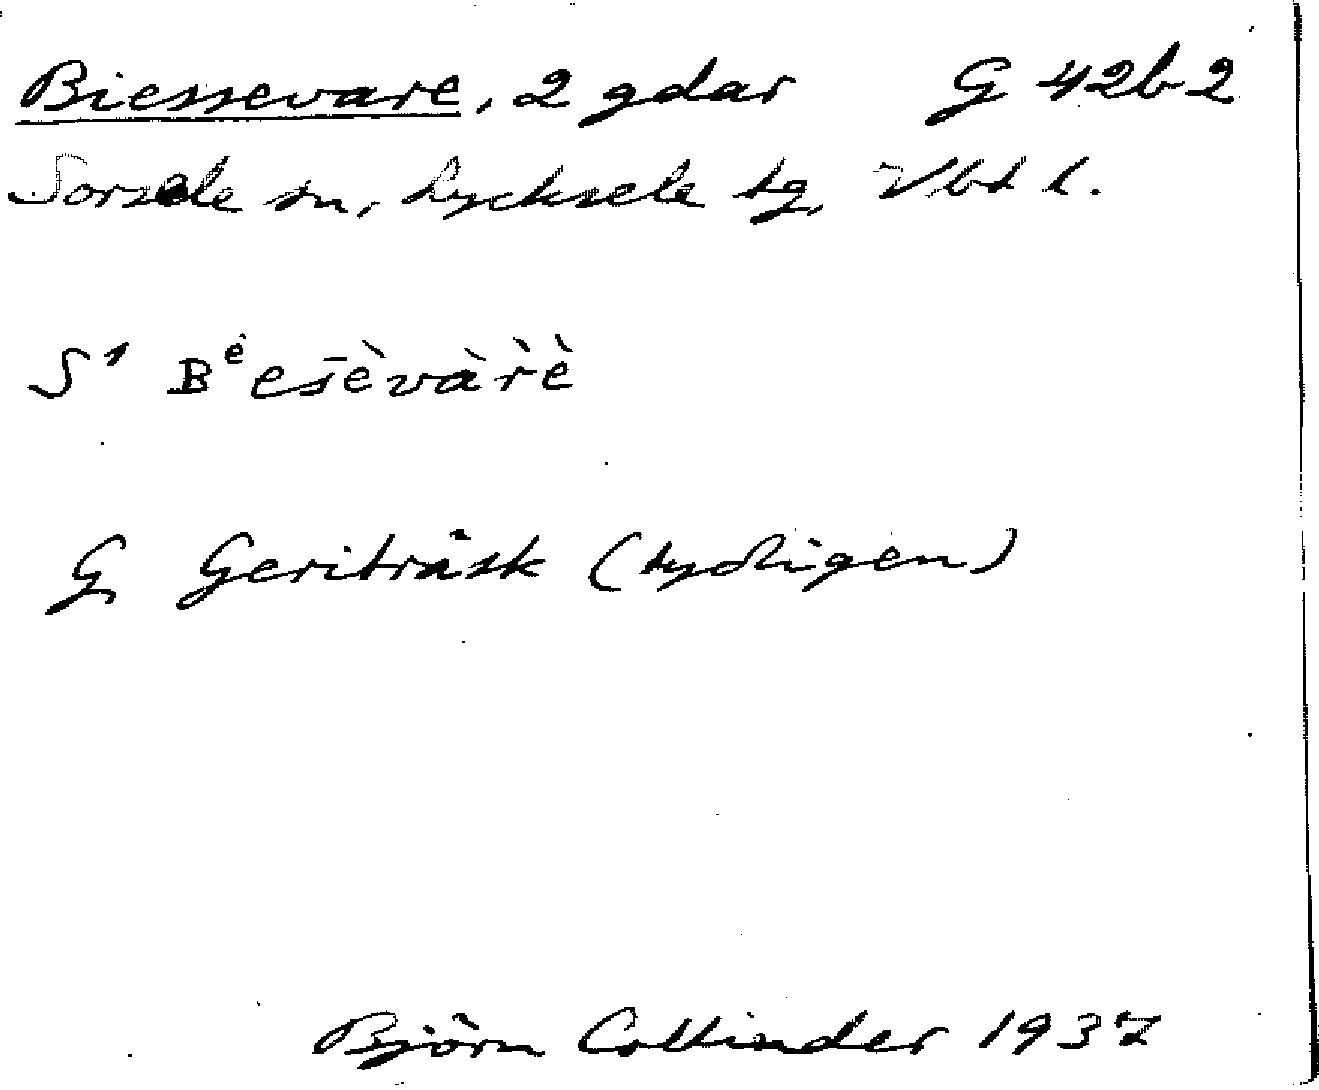 Biessevare, 2 gdar G 42b2
Sorsele sn, Lycksele tg, Vbd l.
S¹ Bᵉes̄èvàr̀è
G Geriträsk (tydligen)
Björn Collinder 1937